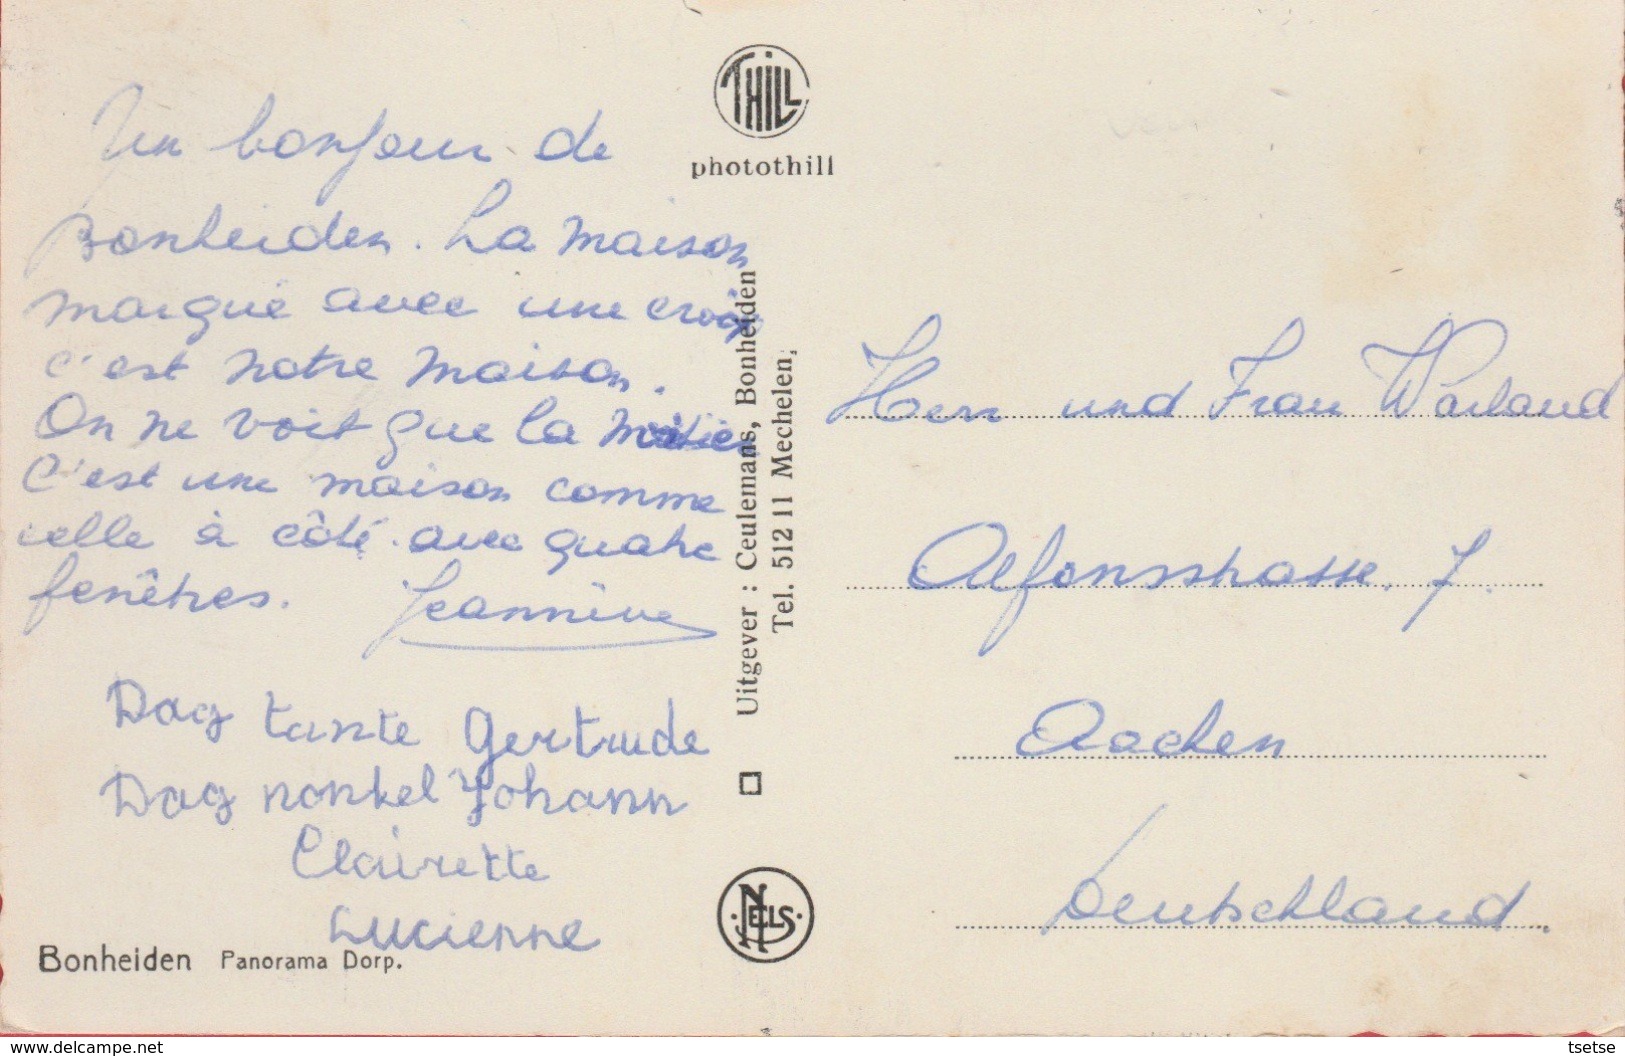 Un bonjour de
Bonheiden. La maison
marqué avec une croix
c'est notre maison.
On ne voit que la
C'est une maison comme
celle à côté avec quatre
fenêtres. Jeannine
Dag tante Gertrude
Dag nonkel Johann
Clairette
Lucienne
Bonheiden Panorama Dorp.
THILL
photothill
Uitgever : Ceulemans, Bonheiden
Tel. 512 11 Mechelen,
NELS
Herr und Frau Warland
Alfonsstrasse. 7.
Aachen
Deutschland.
www.delcampe.net
tsetse